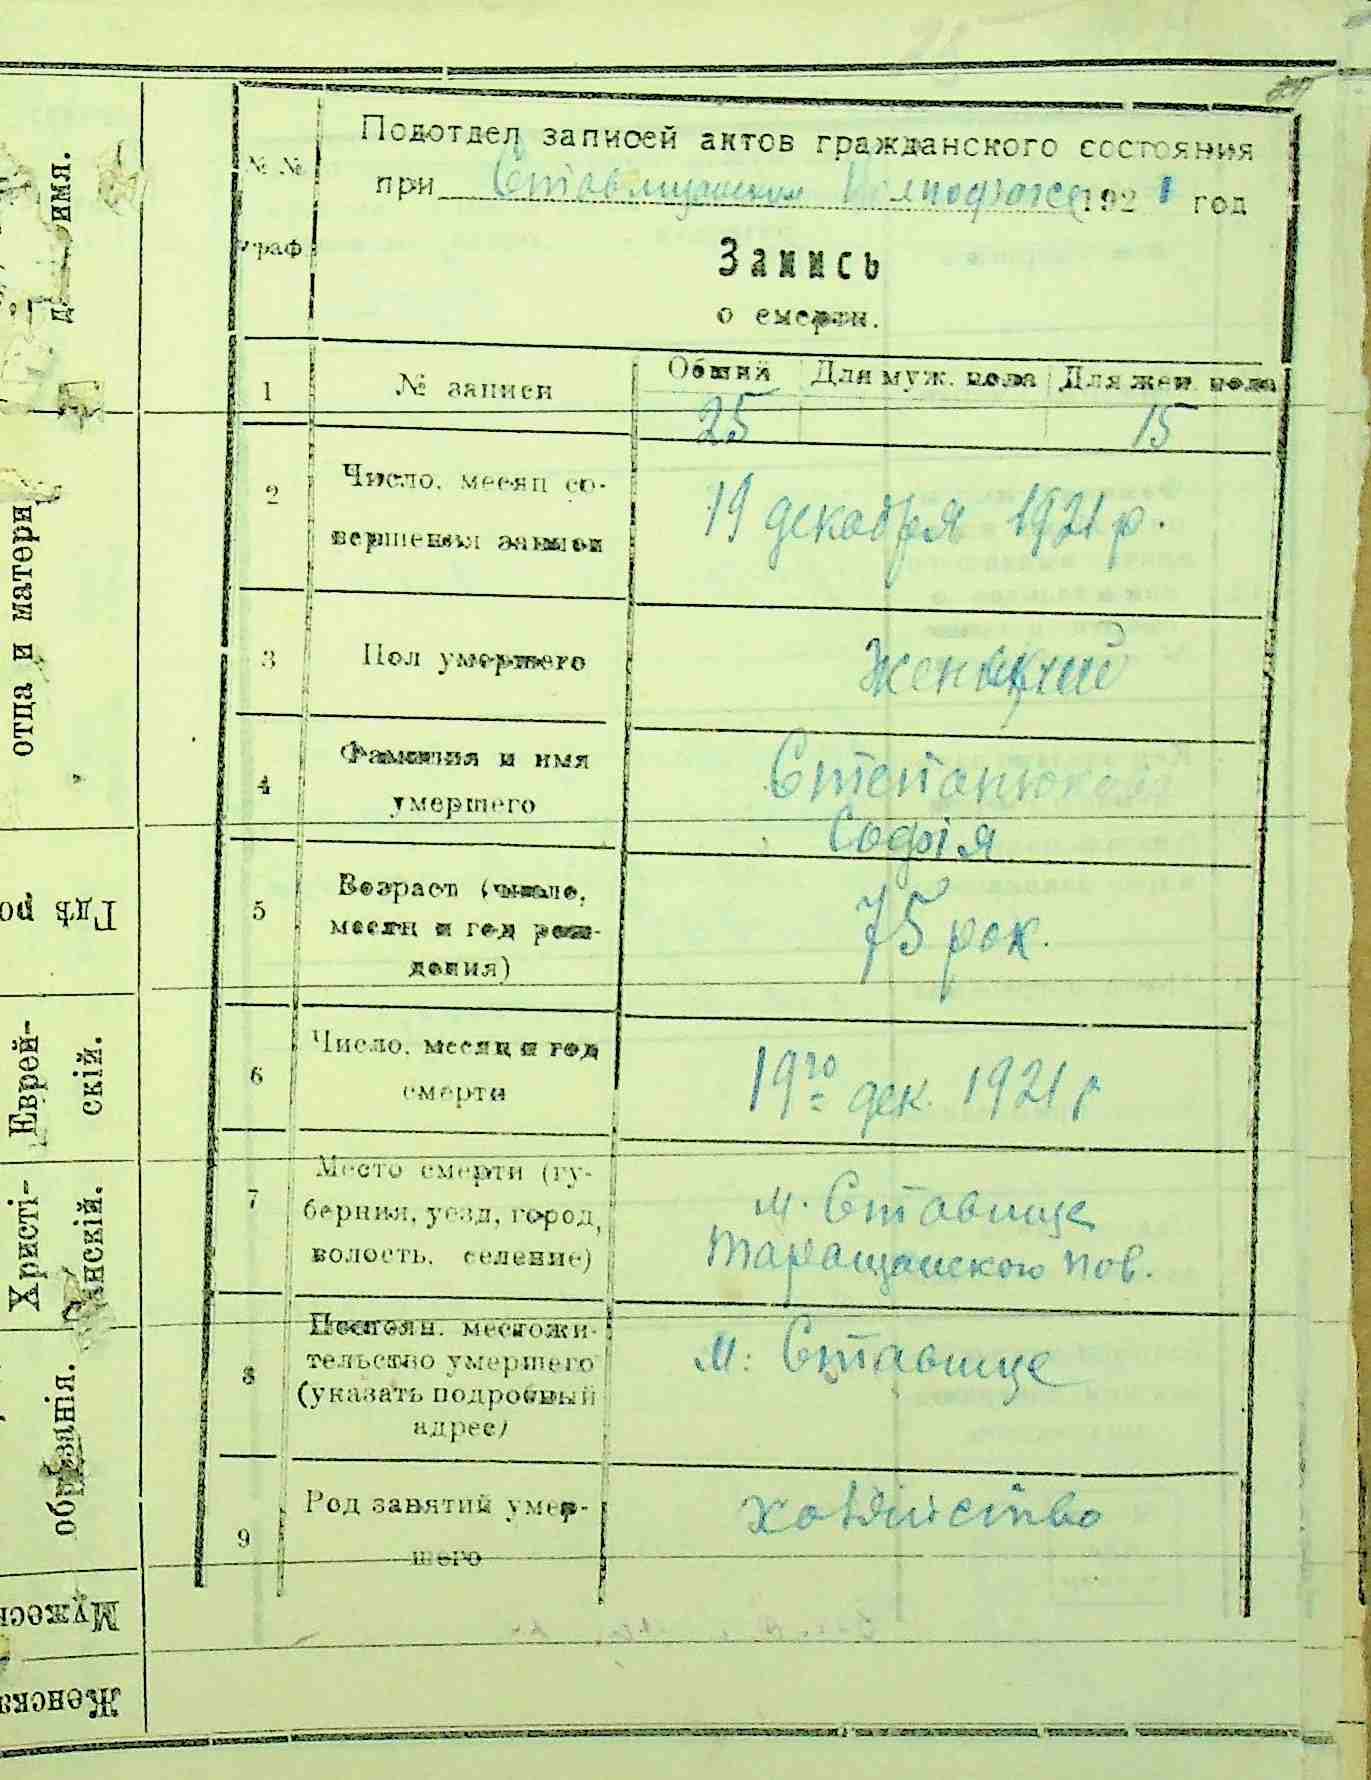 Подотдел записей актов гражданского состояния
при Ставищанском 1921 год
№ №
граф
Запись
о смерти.
1 № записи Общий Для муж. пола Для жен. пола
25 15
2 Число, месяц со-
вершения записи
19 декабря 1921 р.
3 Пол умершего
4 Фамилия и имя
умершего
Степанюкова
Софія
5 Возраст (число,
месяц и год рож-
дения)
75 рок.
6 Число, месяц и год
смерти
19го дек. 1921 р
7 Место смерти (гу-
берния, уезд, город,
волость, селение)
м. Ставище
Таращанского пов.
8 Постоян. местожи-
тельство умершего
(указать подробный
адрес)
м: Ставище
9 Род занятий умер-
шего
хозяйство
имя.
отца и матери
Гдѣ ро
Еврей-
скій.
Христі-
анскій.
обрѣзанія.
Мужеск
Женска